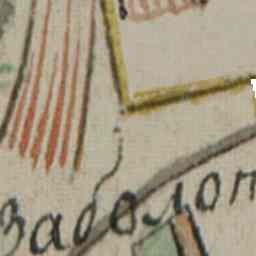 Заболот